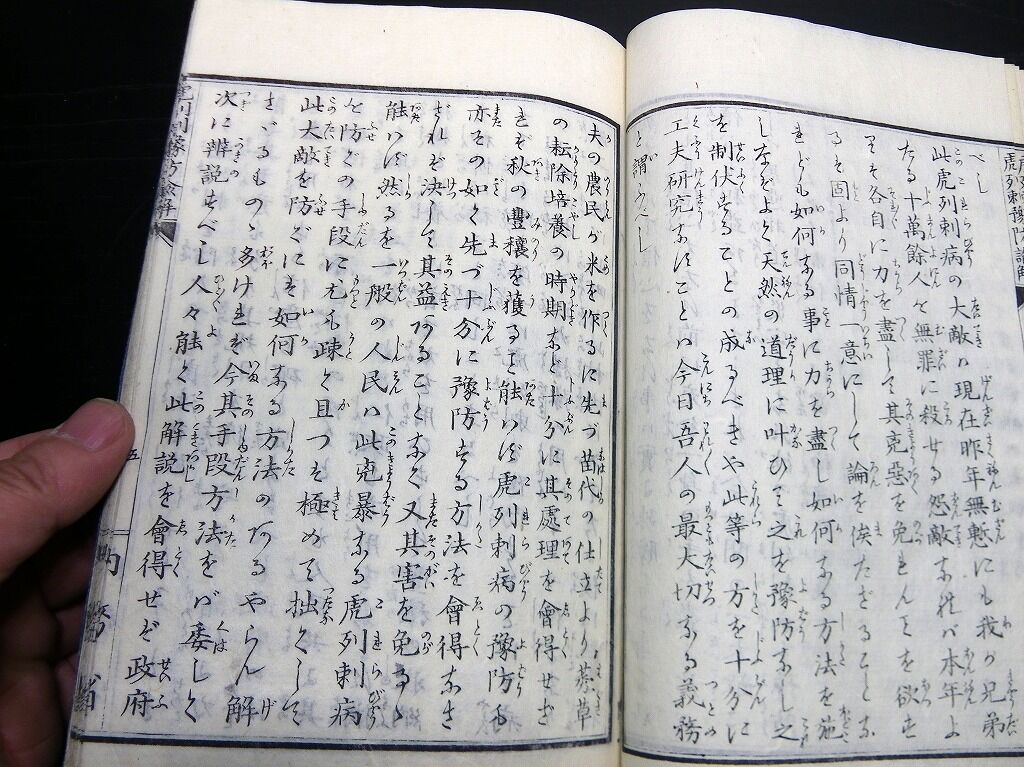 虎列刺豫防諭解
べし
此虎列刺病の大敵ハ現在昨年無慙にも我が兄弟
たる十萬餘人を無罪に殺せる怨敵なれバ本年よ
りそ各自に力を盡して其兇惡を免れんを欲す
るも固より同情一意にして論を俟たざることな
れども如何なる事に力を盡し如何なる方法を施
しなばよく天然の道理に叶ひて之を豫防な之
を制伏することの成るべきや此等の方を十分に
工夫研究なすことハ今日吾人の最大切なる義務
と謂ふべし
夫の農民が米を作るに先づ苗代の仕立より蔡草
の耘除培養の時期など十分に其處理を會得せざ
れば秋の豐穰を獲ること能はず虎列刺病の豫防も
亦その如く先づ十分に豫防する方法を會得なさ
ざれバ決して其益あることなく又其害を免るゝ
能はず然るを一般の人民ハ此兇暴なる虎列刺病
を防ぐの手段に尤も疎く且つ極めて拙くして
此大敵を防ぐにハ如何なる方法のあるやらん解
さゞるもの多ければ今其手段方法をバ委しく
次に辨説すべし人々能く此解説を會得せば政府
虎列刺豫防諭解
五
内務省